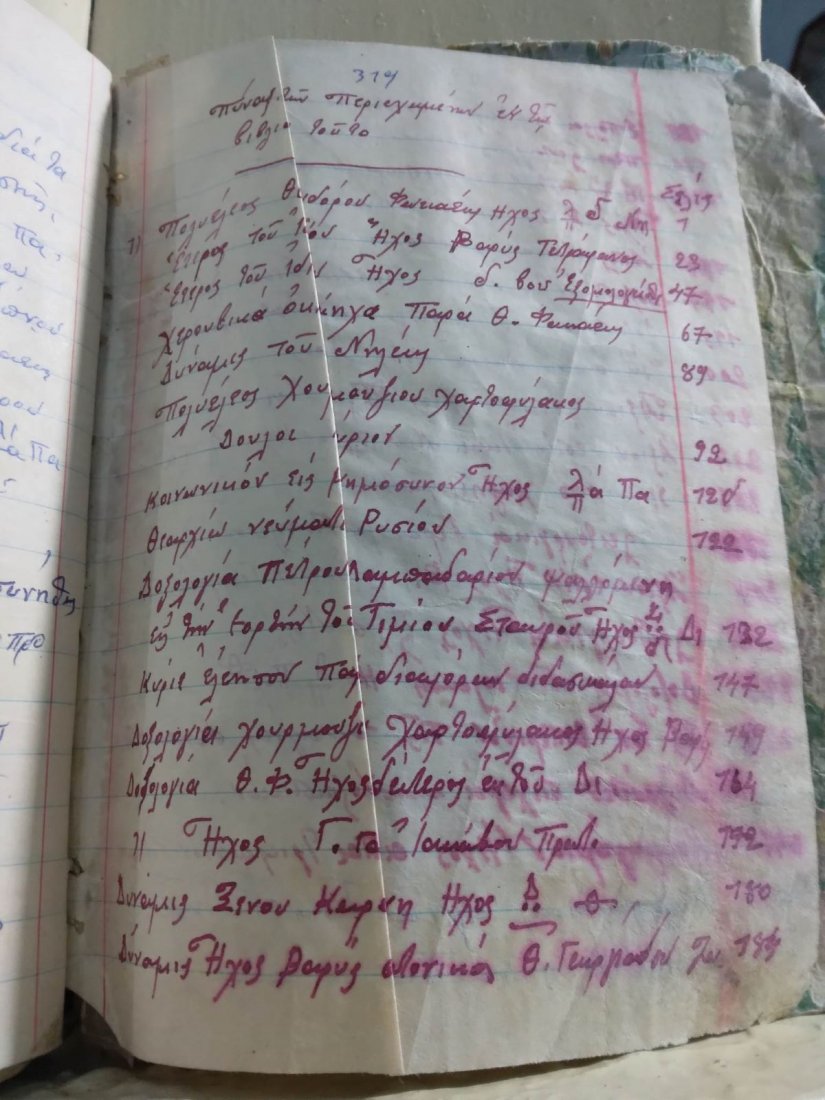 319
Πίναξ τῶν Περιεχομένων ἐν τῷ
βιβλίῳ τούτῳ
Σελίς
Πολυέλεος Θεοδόρου Φωκαέως Ηχος λ/π δ Νη 1
Ἕτερος τοῦ Ἰδίου Ἦχος Βαρύς Τετράφωνος 23
Ἕτερος τοῦ Ἰδίου Ἦχος δ. Βου Ἐξομολογεῖσθε 47
Χερουβικά ὀκτάηχα Παρά Θ. Φωκαέως 67
Δύναμις τοῦ Νηλέως 89
Πολυέλεος Χουρμουζίου Χαρτοφύλακος
Δουλοι κύριον 92
Κοινωνικόν εἰς μνημόσυνον Ἦχος λ/π ά Πα 120
Θεαρχίω νεύματι Ρυσίου 122
Δοξολογία Πέτρου Λαμπαδαρίου ψαλλομένη
Εἰς τήν Ἑορτήν τοῦ Τιμίου Σταυροῦ Ἦχος Δι 132
Κύριε ἐλέησον Παρ διαφόρων διδασκάλων 147
Δοξολογία Χουρμουζίου Χαρτοφύλακος Ἦχος Βαρύς 149
Δοξολογία Θ. Φ. Ἦχος δεύτερος ἐκ τοῦ Δι 164
〃 Ἦχος Γ. Γα Ἰακώβου Πρωτ. 172
Δύναμις Ξένου Κορώνη Ηχος Δ 180
Δύναμις Ἦχος Βαρύς Θ. Γεωργιάδου Ζω